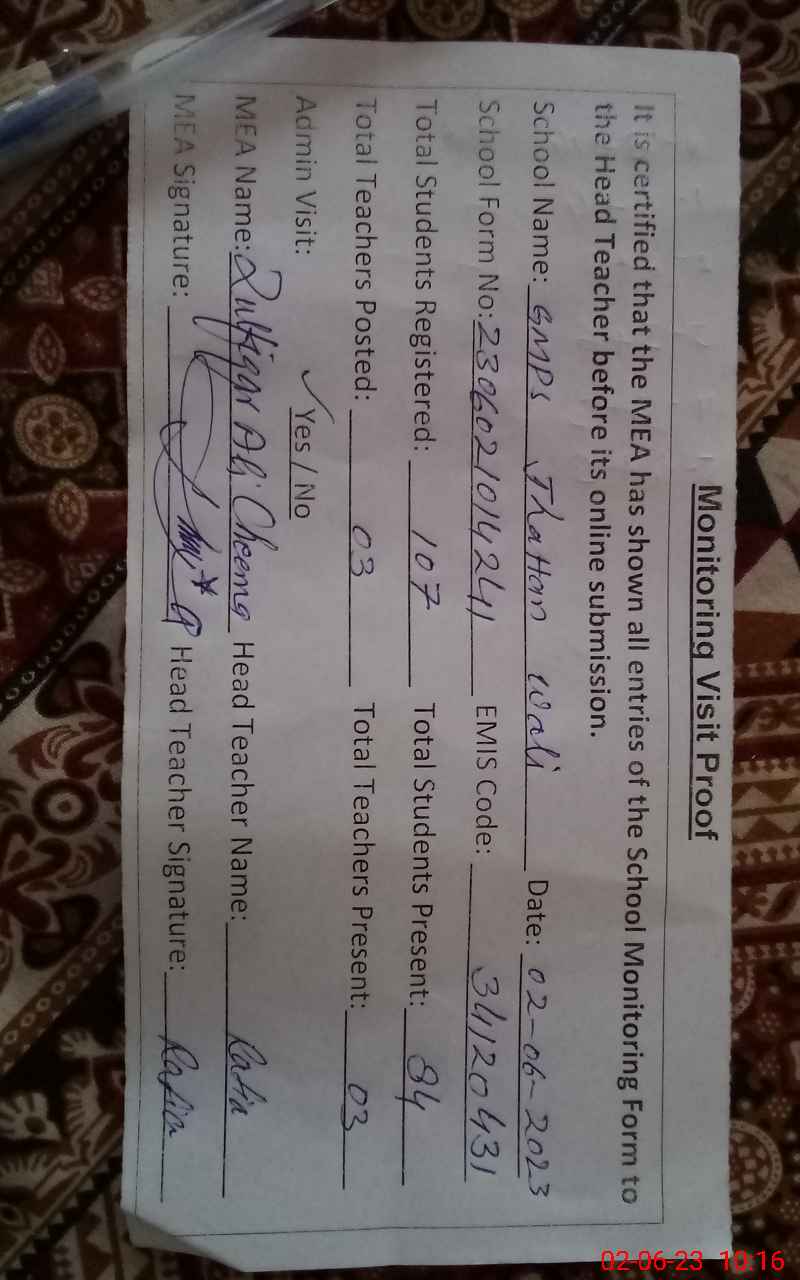 Monitoring Visit Proof
It is certified that the MEA has shown all entries of the School Monitoring Form to
the Head Teacher before its online submission.
School Name: GMPS Thattan Wali Date: 02-06-2023
School Form No: 23060210142411 EMIS Code: 34120431
Total Students Registered: 107 Total Students Present: 84
Total Teachers Posted: 03 Total Teachers Present: 03
Admin Visit: ✓ Yes / No
MEA Name: Zulfiqar Ali Cheema Head Teacher Name:
MEA Signature: Head Teacher Signature:
02-06-23 10:16